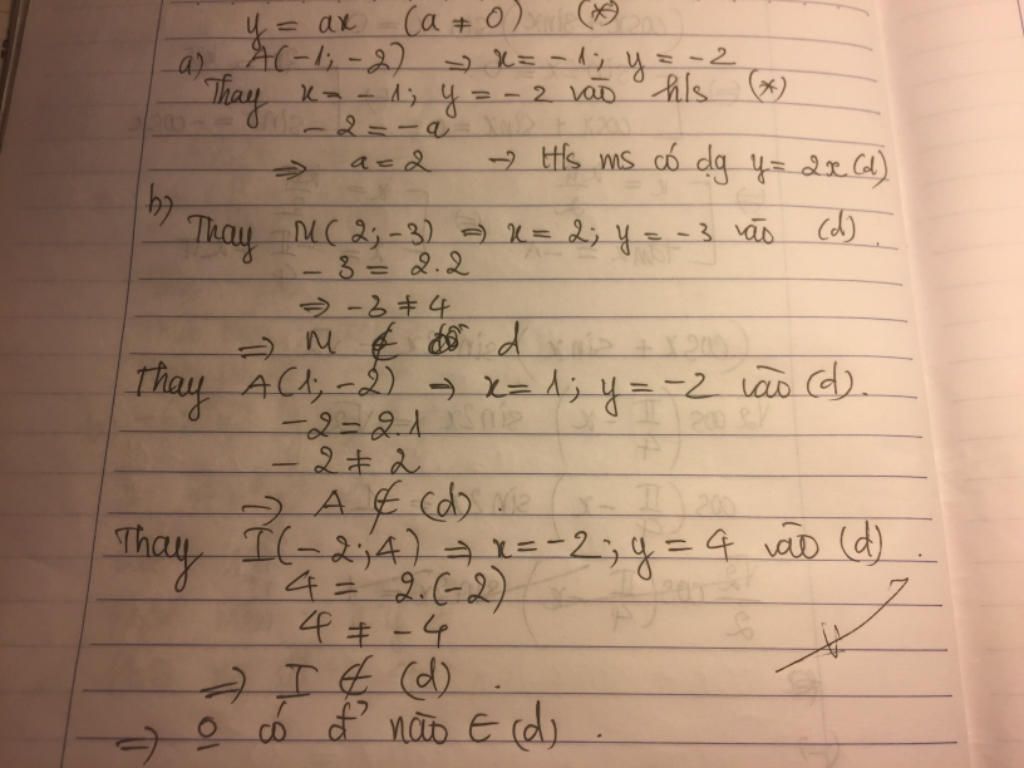 y = ax (a ≠ 0) (*)
a) A(-1; -2) => x = -1; y = -2
Thay x = -1; y = -2 vào h/s (*)
-2 = -a
=> a = 2 -> Hfs ms có dg y = 2x (d)
b)
Thay M(2; -3) => x = 2; y = -3 vào (d).
-3 = 2.2
=> -3 ≠ 4
=> M ∉ d
Thay A(1; -2) -> x = 1; y = -2 vào (d).
-2 = 2.1
-2 ≠ 2
=> A ∉ (d).
Thay I(-2; 4) => x = -2; y = 4 vào (d).
4 = 2.(-2)
4 ≠ -4
=> I ∉ (d).
=> o có đ' nào ∈ (d).